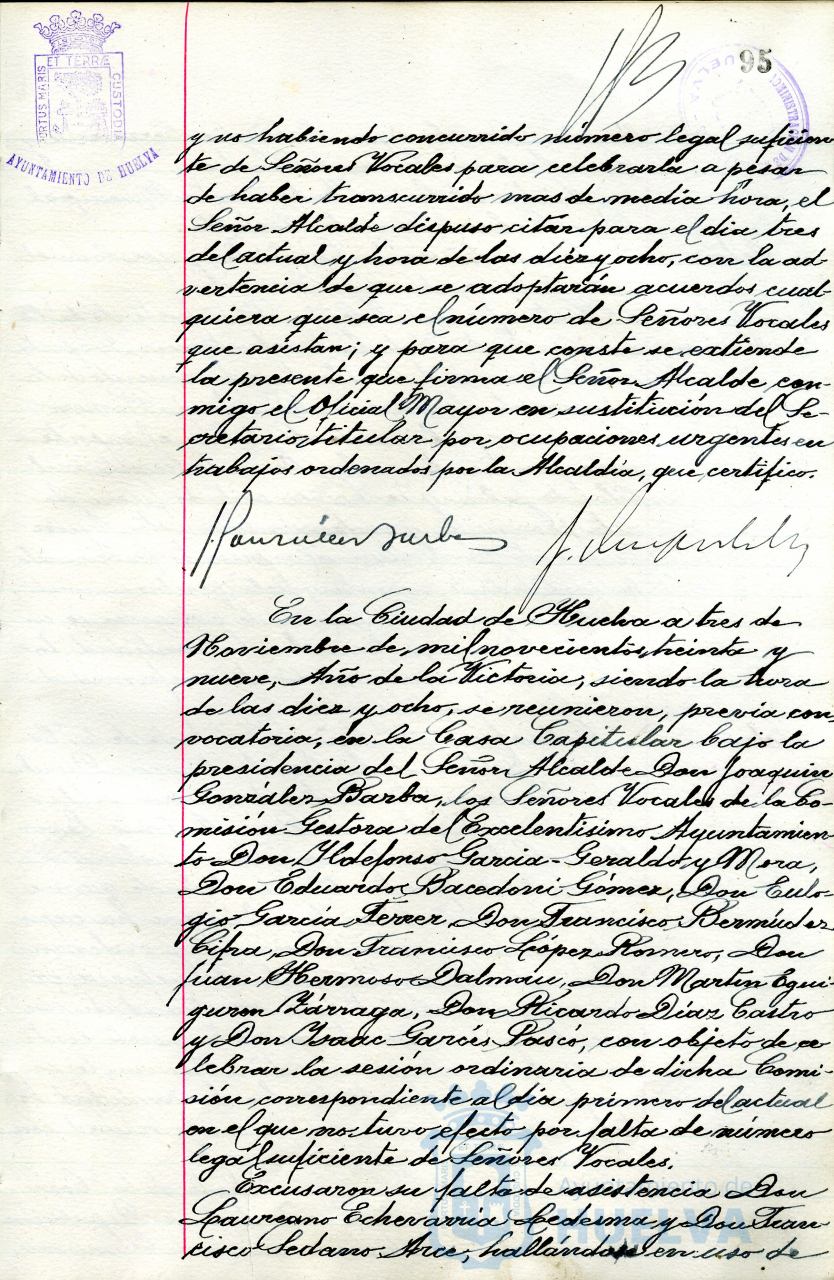 95
PORTUS MARIS ET TERRÆ CUSTODIA
AYUNTAMIENTO DE HUELVA
y no habiendo concurrido número legal suficien-
te de Señores Vocales para celebrarla a pesar
de haber transcurrido mas de media hora, el
Señor Alcalde dispuso citar para el dia tres
del actual y hora de las diez y ocho, con la ad-
vertencia de que se adoptarán acuerdos cual-
quiera que sea el número de Señores Vocales
que asistan; y para que conste se extiende
la presente que firma el Señor Alcalde con-
migo el Oficial Mayor en sustitución del Se-
cretario titular por ocupaciones urgentes en
trabajos ordenados por la Alcaldía, que certifico.
En la Ciudad de Huelva a tres de
Noviembre de mil novecientos treinta y
nueve, Año de la Victoria, siendo la hora
de las diez y ocho, se reunieron, previa con-
vocatoria, en la Casa Capitular bajo la
presidencia del Señor Alcalde Don Joaquin
González Barba, los Señores Vocales de la Co-
misión Gestora del Excelentisimo Ayuntamien-
to Don Ildefonso Garcia-Geraldo y Mora,
Don Eduardo Bacedoni Gómez, Don Euló-
gio García Ferrer Don Francisco Bermúdez
Cifra, Don Francisco López Romero, Don
Juan Hermoso Dalmau, Don Martin Egui-
guren Zárraga, Don Ricardo Díaz Castro
y Don Isaac Garcés Pascó, con objeto de ce-
lebrar la sesión ordinaria de dicha Comi-
sión correspondiente al dia primero del actual
en el que no tuvo efecto por falta de número
legal suficiente de Señores Vocales.
Excusaron su falta de asistencia Don
Laureano Echevarría Ledesma y Don Fran-
cisco Sedano Arce, hallándose en uso de
Ayuntamiento de
HUELVA